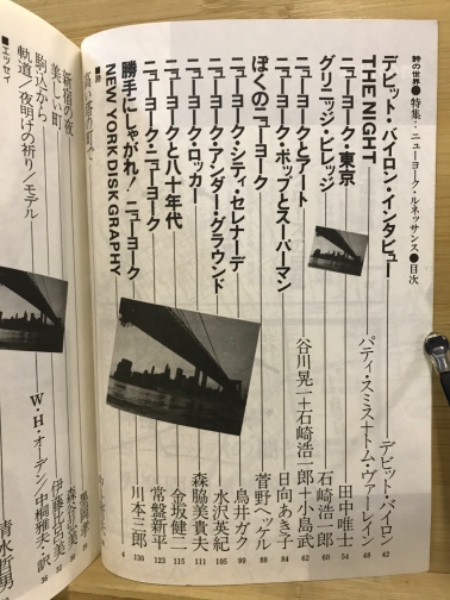 詩の世界●特集:ニューヨーク・ルネッサンス●目次
デビット・バイロン・インタビュー デビット・バイロン 42
THE NIGHT パティ・スミス+トム・ヴァーレイン 48
ニューヨーク・東京 田中唯士 54
グリニッジ・ビレッジ 石崎浩一郎 60
ニューヨークとアート 谷川晃一+石崎浩一郎+小島武 62
ニューヨーク・ポップとスーパーマン 日向あき子 84
ぼくのニューヨーク 菅野ヘッケル 88
ニューヨーク・シティ・セレナーデ 鳥井ガク 99
ニューヨーク・アンダー・グラウンド 水沢英紀 105
ニューヨーク・ロッカー 森脇美貴夫 111
ニューヨークと八十年代 金坂健二 115
ニューヨーク・ニューヨーク 常盤新平 123
勝手にしゃがれ!ニューヨーク 川本三郎 130
NEW YORK DISK GRAPHY 4
■詩
高い塔の町で
新宿の夜
美しい町 伊藤比呂美
駒込から W・H・オーデン/中桐雅夫・訳
軌道/夜明けの祈り/モデル 清水哲男
■エッセイ